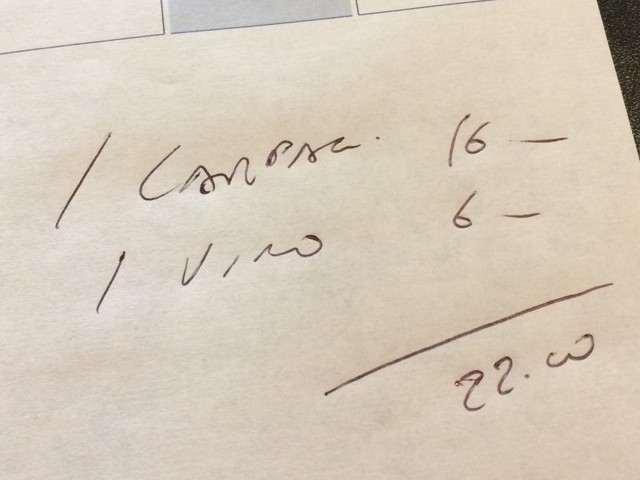 1 CARPAC. 16 —
1 VINO 6 —
22.00